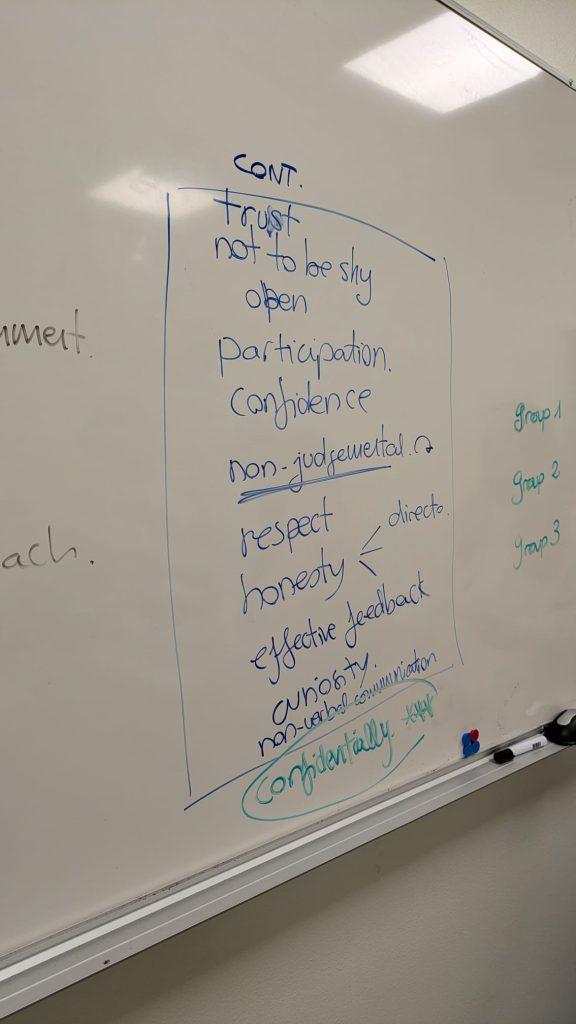 CONT.
trust
not to be shy
open
participation.
confidence
non-judgemental.
respect
honesty
directo.
effective feedback
curiosity.
non-verbal communication
confidentially.
group 1
group 2
group 3
ach.